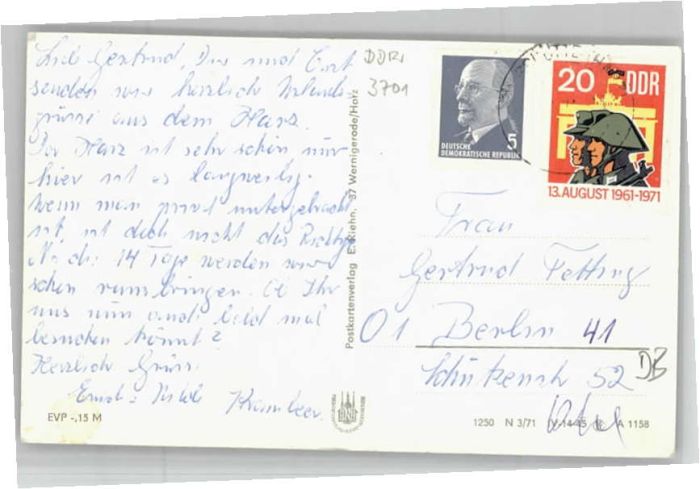 Lieb Gertrud, Dir und Curt
senden wir herzlich Urlaubs-
grüsse aus dem Harz.
Der Harz ist sehr schön nur
hier ist es langweilig.
Wenn man privat untergebracht
ist, ist doch nicht das Richtige
Na die 14 Tage werden wir
schon rumbringen. Ob Ihr
uns nun auch bald mal
besuchen könnt?
Herzlich Grüsse
Ernst
DDR
3701
Postkartenverlag E. Riehn, 37 Wernigerode/Harz
DEUTSCHE
DEMOKRATISCHE REPUBLIK
5
20 DDR
13. AUGUST 1961-1971
Frau
Gertrud Fetting
01 Berlin 41
Schützenstr 52
DB
EVP -,15 M
1250 N 3/71 A 1158